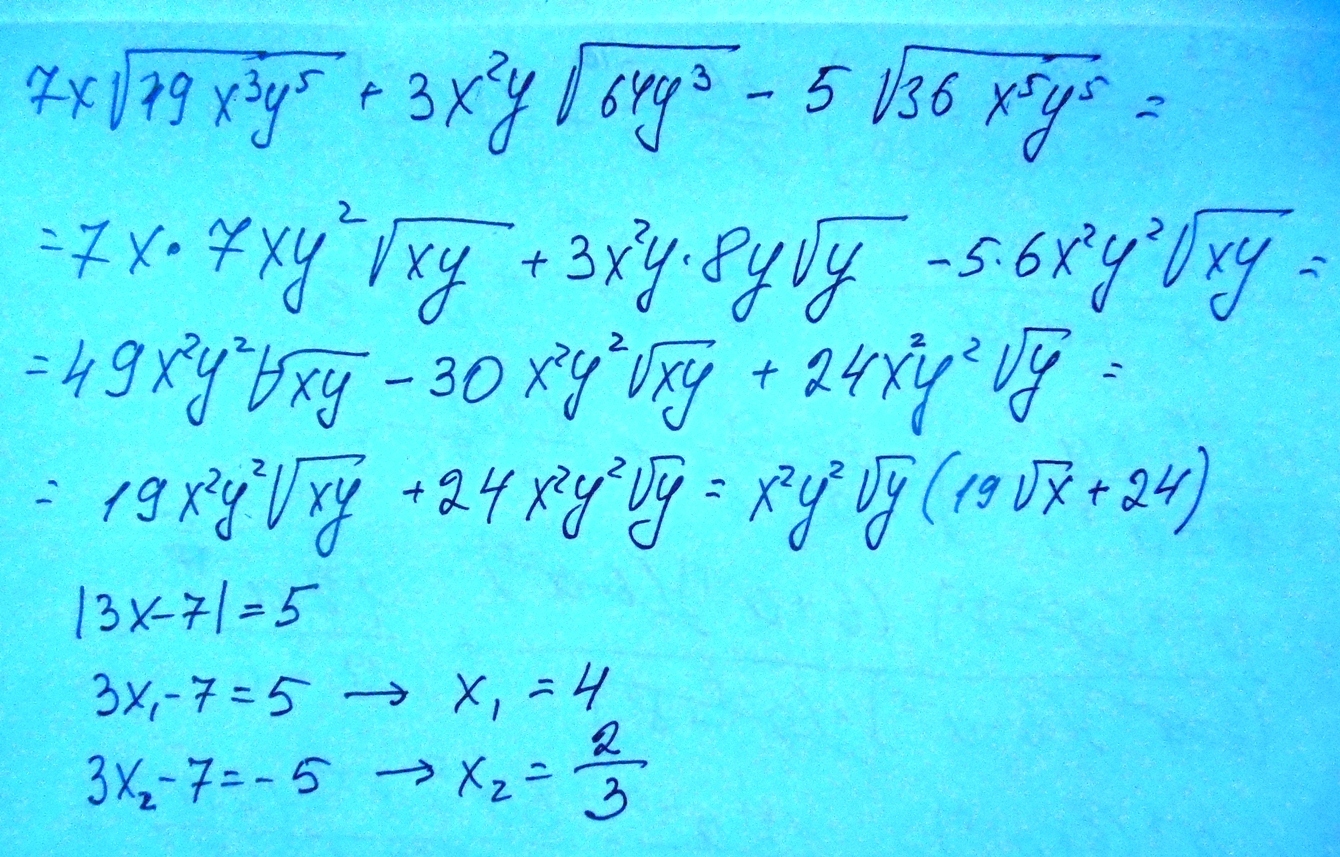 7x√(49x³y⁵) + 3x²y√(64y³) - 5√(36x⁵y⁵) =
= 7x·7xy²√(xy) + 3x²y·8y√y - 5·6x²y²√(xy) =
= 49x²y²√(xy) - 30x²y²√(xy) + 24x²y²√y =
= 19x²y²√(xy) + 24x²y²√y = x²y²√y(19√x + 24)
|3x-7| = 5
3x₁-7 = 5 → x₁ = 4
3x₂-7 = -5 → x₂ = 2/3